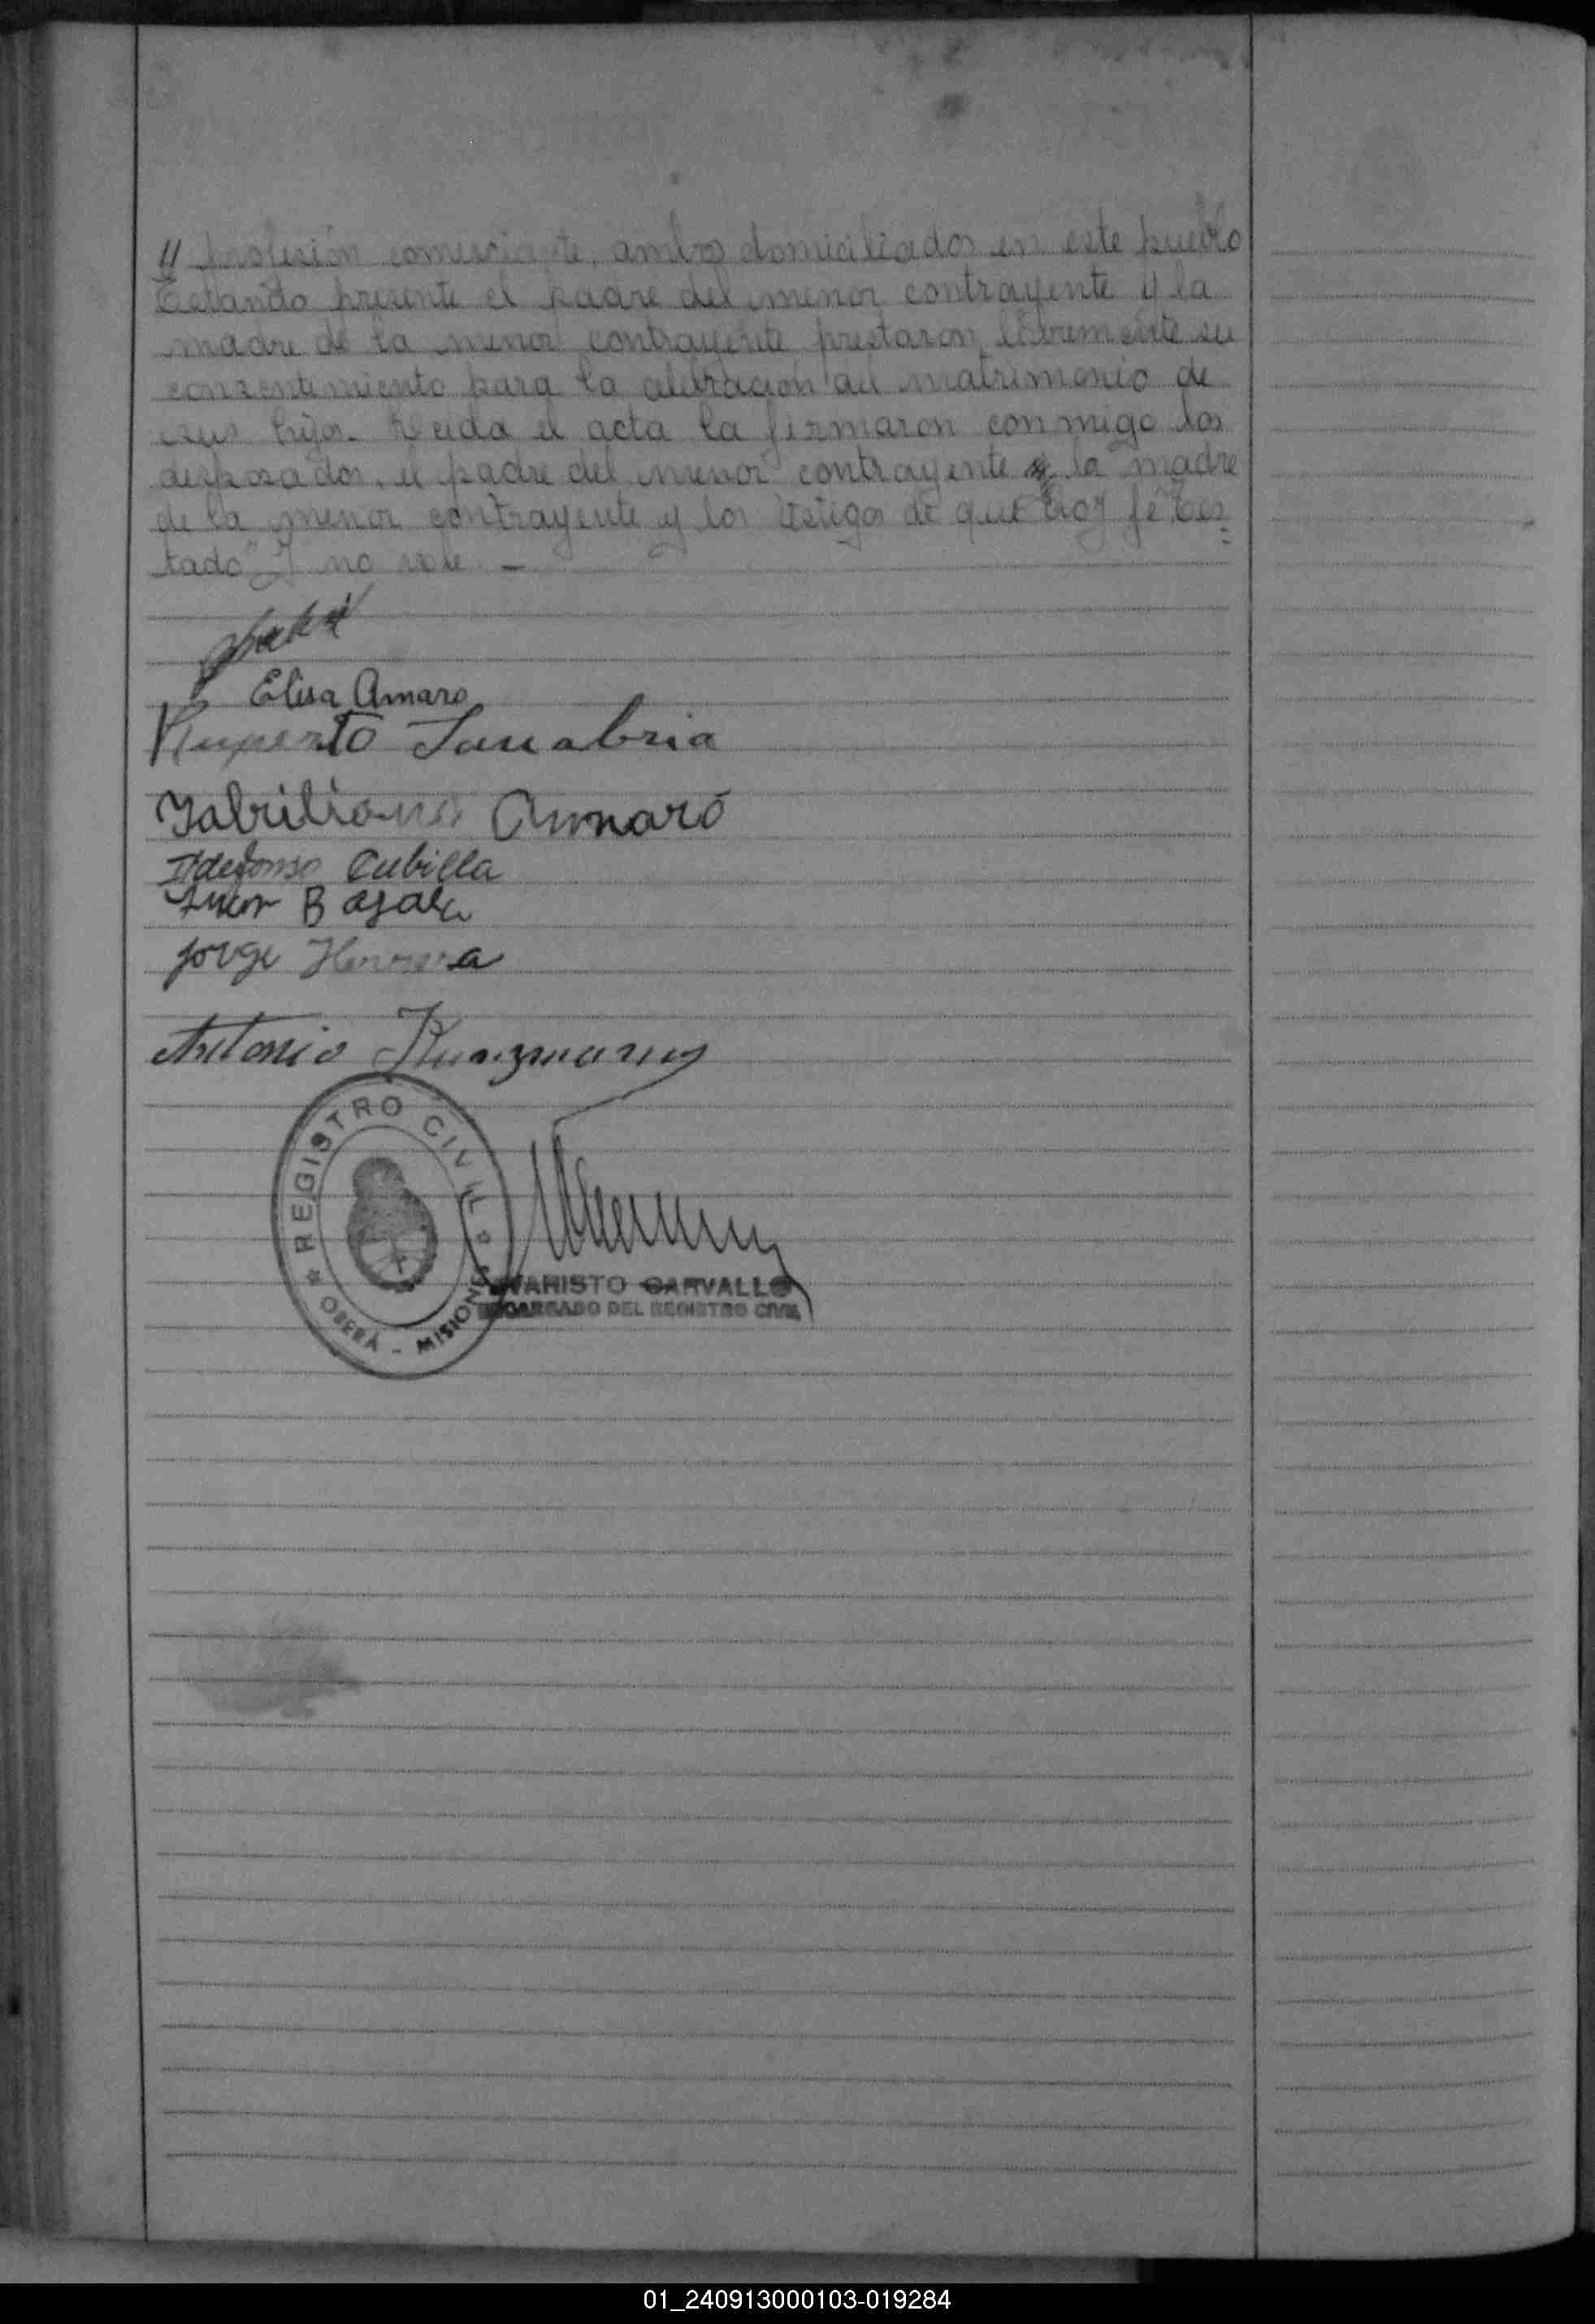 " profesión comerciante, ambos domiciliados en este pueblo
Estando presente el padre del menor contrayente y la
madre de la menor contrayente prestaron libremente su
consentimiento para la celebración del matrimonio de
sus hijos. Leida el acta la firmaron conmigo los
desposados, el padre del menor contrayente y la madre
de la menor contrayente y los testigos de que doy fé. Tes=
tado "y" no vale. -
Elisa Amaro
Ruperto Sanabria
Amaró
Ildefonso Cubilla
Jorge Herrera
Antonio Kunzmann
REGISTRO CIVIL
OBERÁ - MISIONES
EVARISTO CARVALLO
ENCARGADO DEL REGISTRO CIVIL
01_240913000103-019284